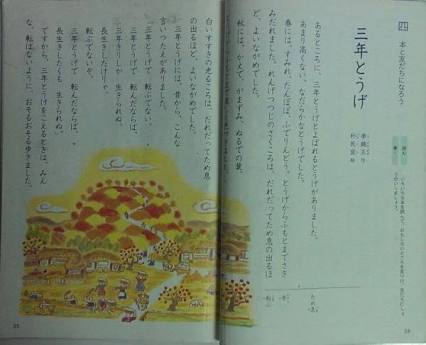 四 本と友だちになろう
三年とうげ
李錦玉 作
朴民宜 絵
あるところに、三年とうげとよばれるとうげがありました。
あまり高くない、なだらかなとうげでした。
春には、すみれ、たんぽぽ、ふでりんどう。とうげからふもとまでさき
みだれました。れんげつつじのさくころは、だれだってため息の出るほ
ど、よいながめでした。
秋には、かえで、がまずみ、ぬるでの葉。
白いすすきの光るころは、だれだってため息
の出るほど、よいながめでした。
三年とうげには、昔から、こんな
言いつたえがありました。
「三年とうげで 転ぶでない。
三年とうげで 転んだならば、
三年きりしか 生きられぬ。
長生きしたけりゃ、
転ぶでないぞ。
三年とうげで 転んだならば、
長生きしたくも 生きられぬ。」
ですから、三年とうげをこえるときは、みん
な、転ばないように、おそるおそる歩きました。
ため息